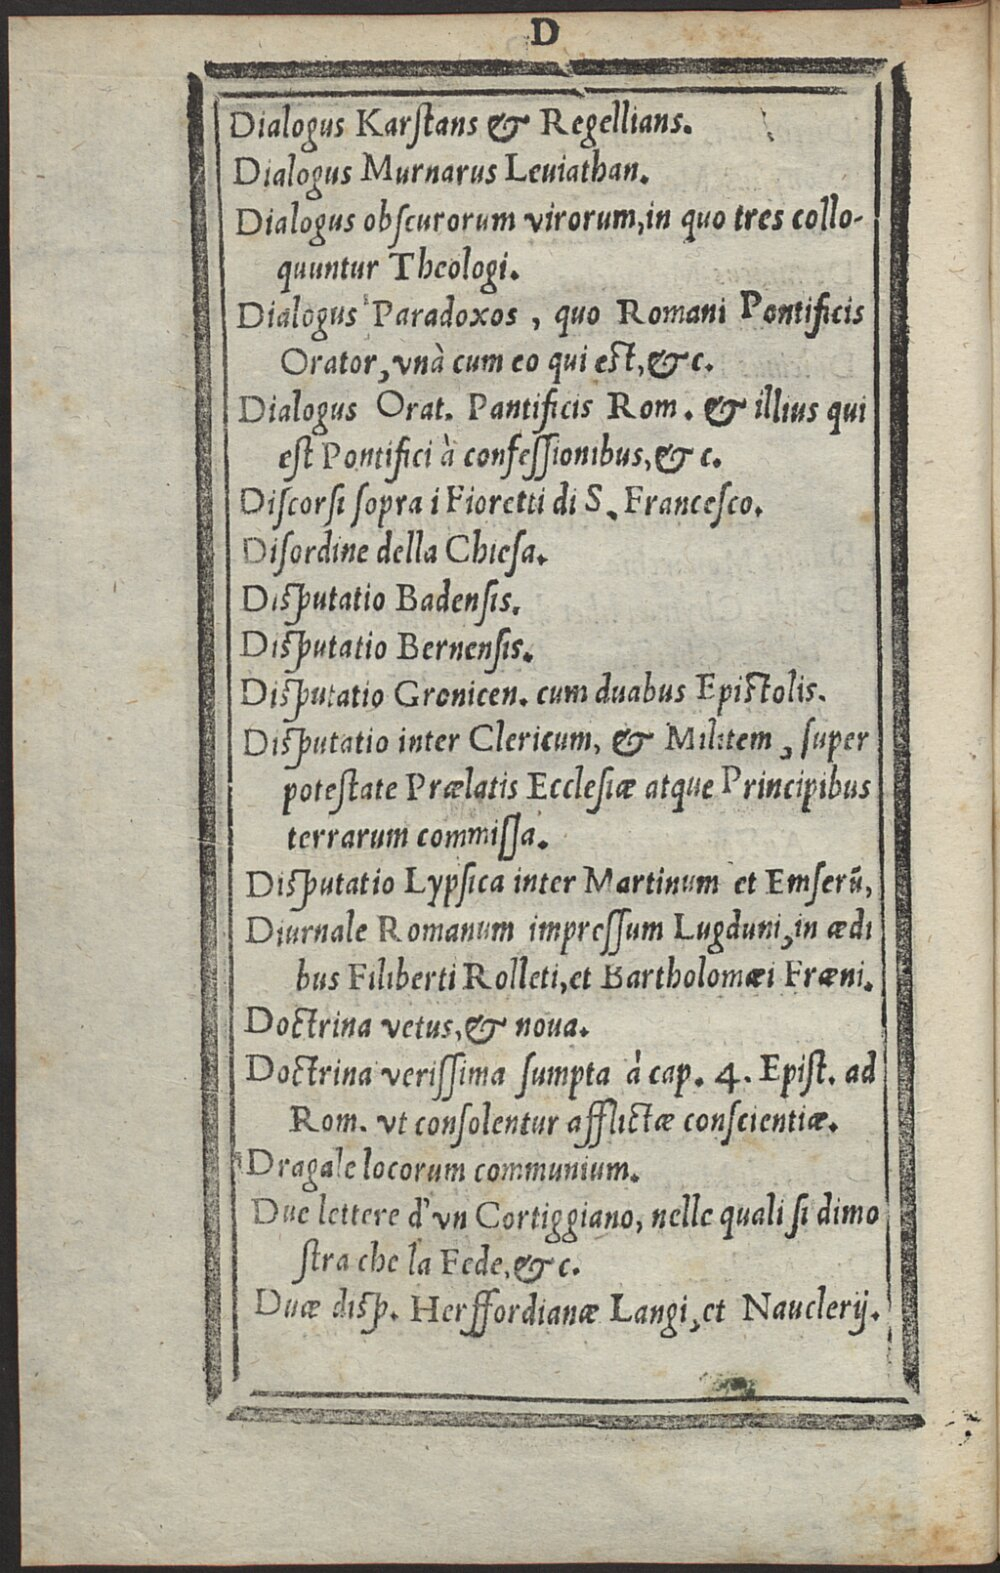 D
Dialogus Karſtans & Regellians.
Dialogus Murnarus Leuiathan.
Dialogus obſcurorum virorum, in quo tres collo-
quuntur Theologi.
Dialogus Paradoxos , quo Romani Pontificis
Orator, vnà cum eo qui eſt, & c.
Dialogus Orat. Pantificis Rom. & illius qui
eſt Pontifici à confeſſionibus, & c.
Diſcorſi ſopra i Fioretti di S. Franceſco.
Diſordine della Chieſa.
Diſputatio Badenſis.
Diſputatio Bernenſis.
Diſputatio Gronicen. cum duabus Epiſtolis.
Diſputatio inter Clericum, & Militem , ſuper
poteſtate Prælatis Eccleſiæ atque Principibus
terrarum commiſſa.
Diſputatio Lypſica inter Martinum et Emſerū,
Diurnale Romanum impreſſum Lugduni, in ædi
bus Filiberti Rolleti, et Bartholomæi Fræni.
Doctrina vetus, & noua.
Doctrina veriſſima ſumpta à cap. 4. Epiſt. ad
Rom. vt conſolentur afflictæ conſcientiæ.
Dragale locorum communium.
Due lettere d'vn Cortiggiano, nelle quali ſi dimo
ſtra che la Fede, & c.
Duæ diſp. Herffordianæ Langi, et Nauclerij.